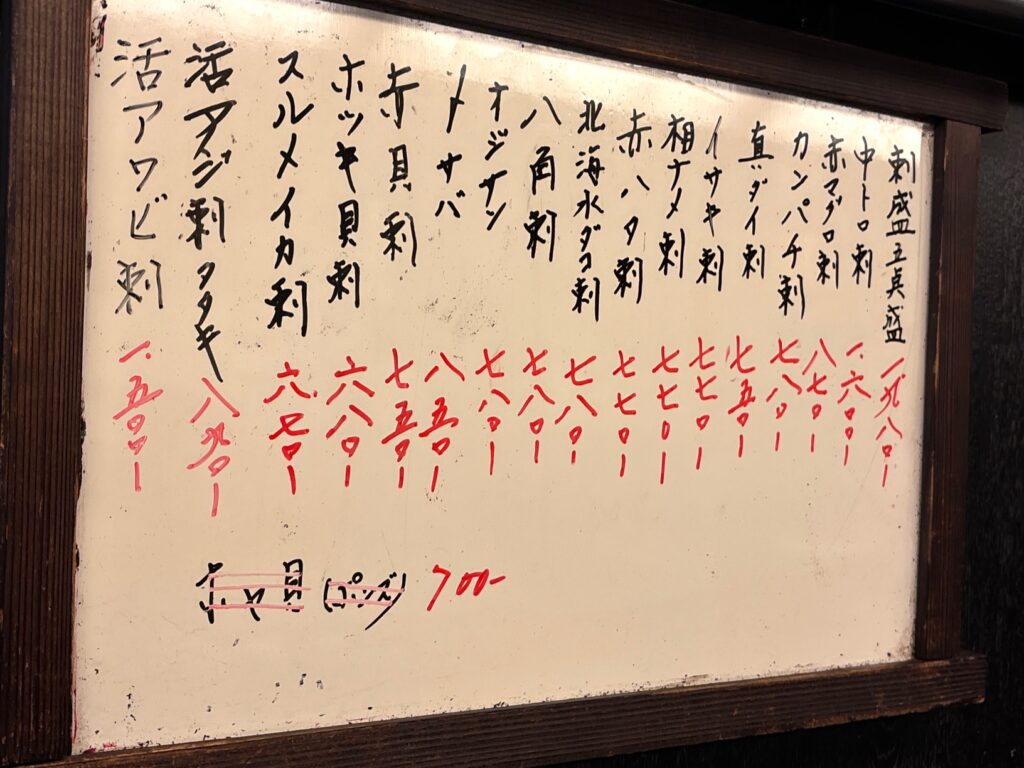 刺盛五点盛 一、九八〇ー
中トロ刺 一、六〇〇ー
赤マグロ刺 八七〇ー
カンパチ刺 七八〇ー
真ダイ刺 七五〇ー
イサキ刺 七七〇ー
相ナメ刺 七七〇ー
赤ハタ刺 七七〇ー
北海水ダコ刺 七八〇ー
八角刺 七八〇ー
オジサン 七八〇ー
〆サバ 八五〇ー
赤貝刺 七五〇ー
ホッキ貝刺 六八〇ー
スルメイカ刺 六七〇ー
活アジ刺タタキ 八九〇ー
活アワビ刺 一、五〇〇ー
(ポンズ) 700-